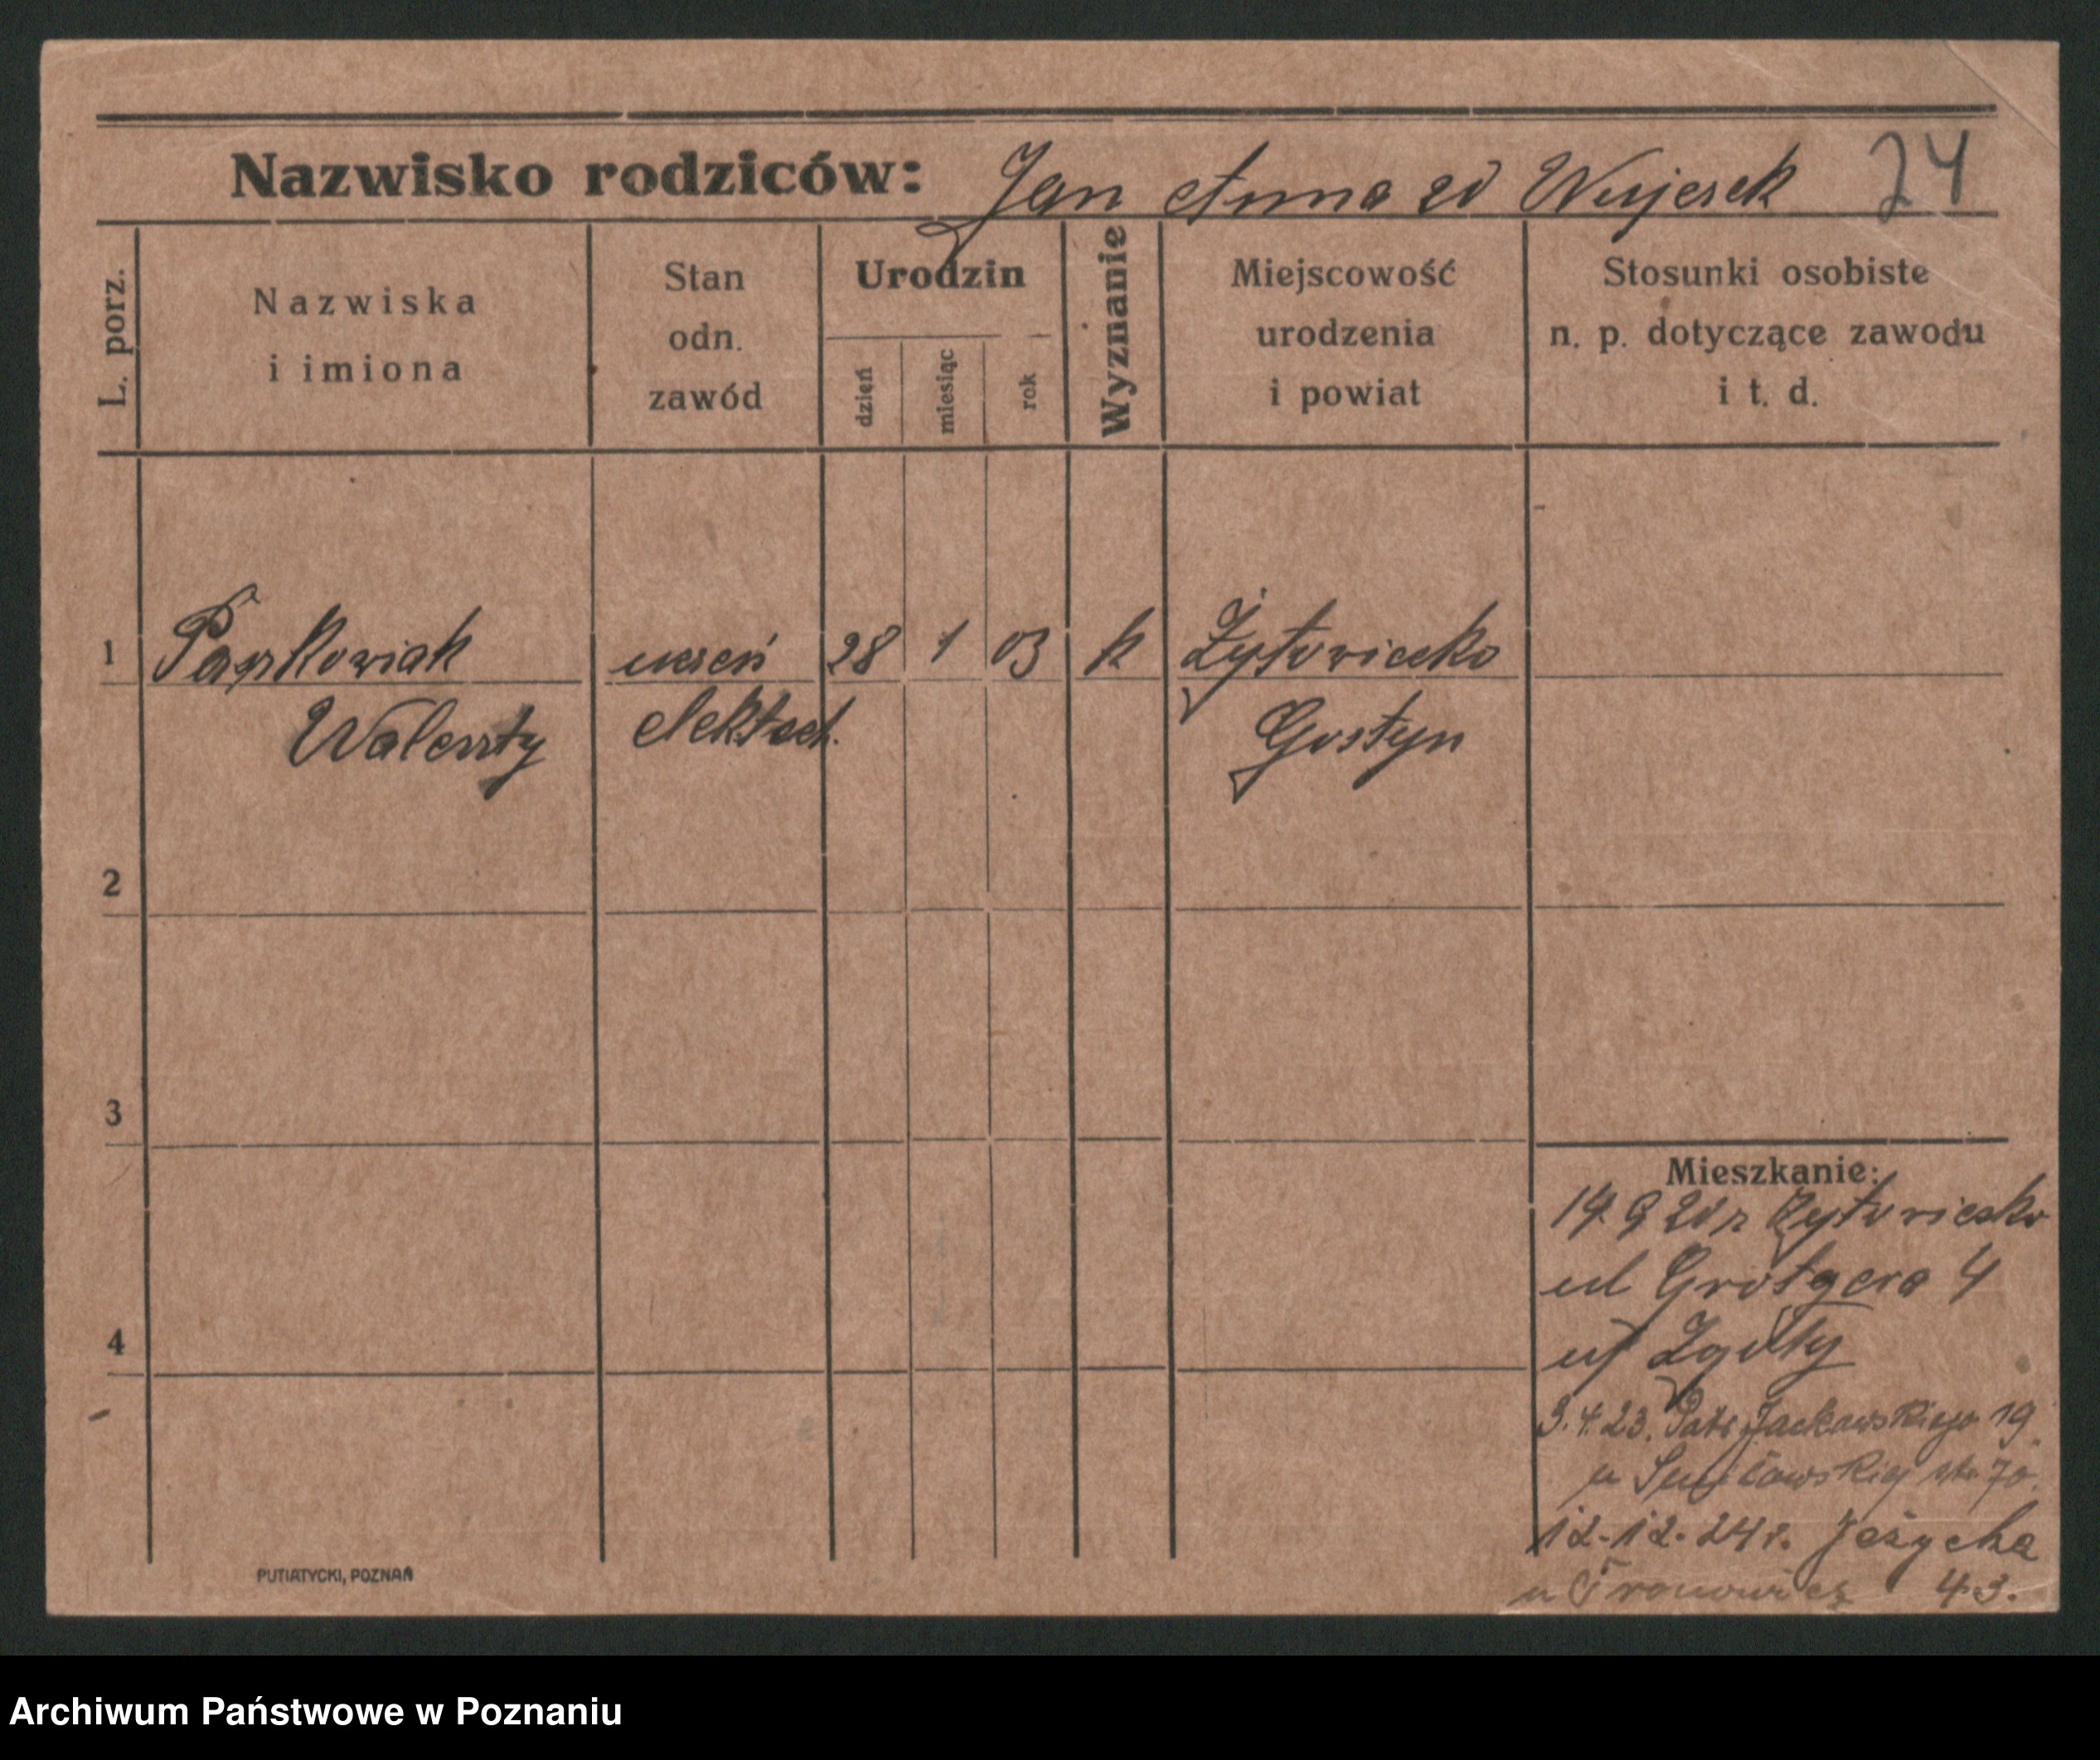 Nazwisko rodziców: Jan Anna zd Wujesek 24
L. porz.
Nazwiska
i imiona
Stan
odn.
zawód
Urodzin
dzień
miesiąc
rok
Wyznanie
Miejscowość
urodzenia
i powiat
Stosunki osobiste
n. p. dotyczące zawodu
i t. d.
1 uczeń 28 1 03 k Żytowiecko
Walenty elektrech. Gostyn
2
3
4
Mieszkanie:
14. 9 20 r Żytowiecko
ul Grotgera 4
3.4.23. Patr Jackowskiego 19
12-12-24r. Jeżycka
43.
PUTIATYCKI, POZNAŃ
Archiwum Państwowe w Poznaniu